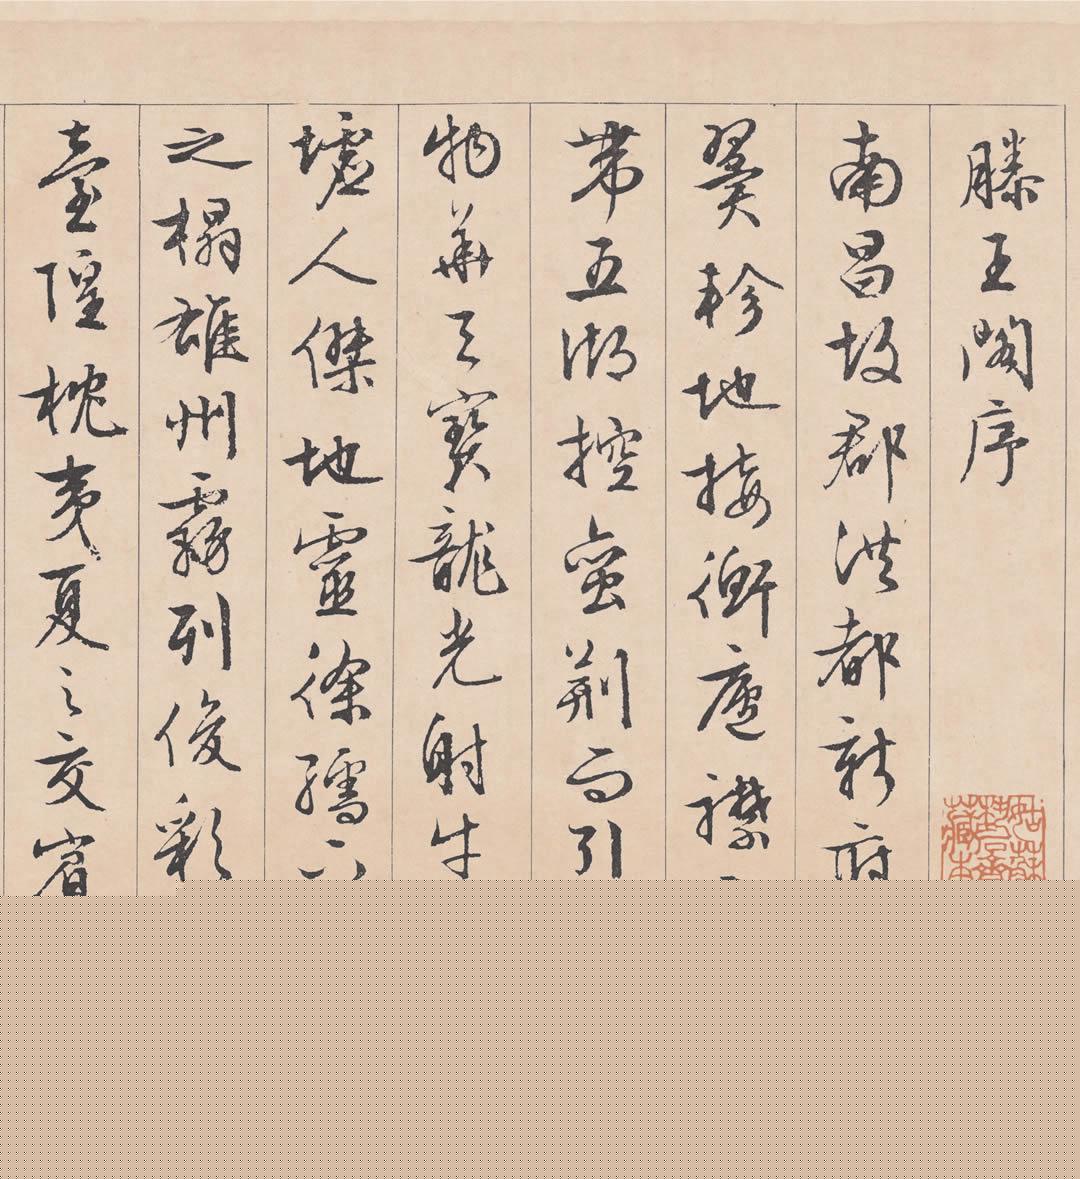 滕王閣序
南昌故郡洪都新府
翼軫地接衡廬襟
帶五湖控蠻荊而引
物華天寶龍光射牛
墟人傑地靈徐孺下
之榻雄州霧列俊彩
臺隍枕夷夏之交賓